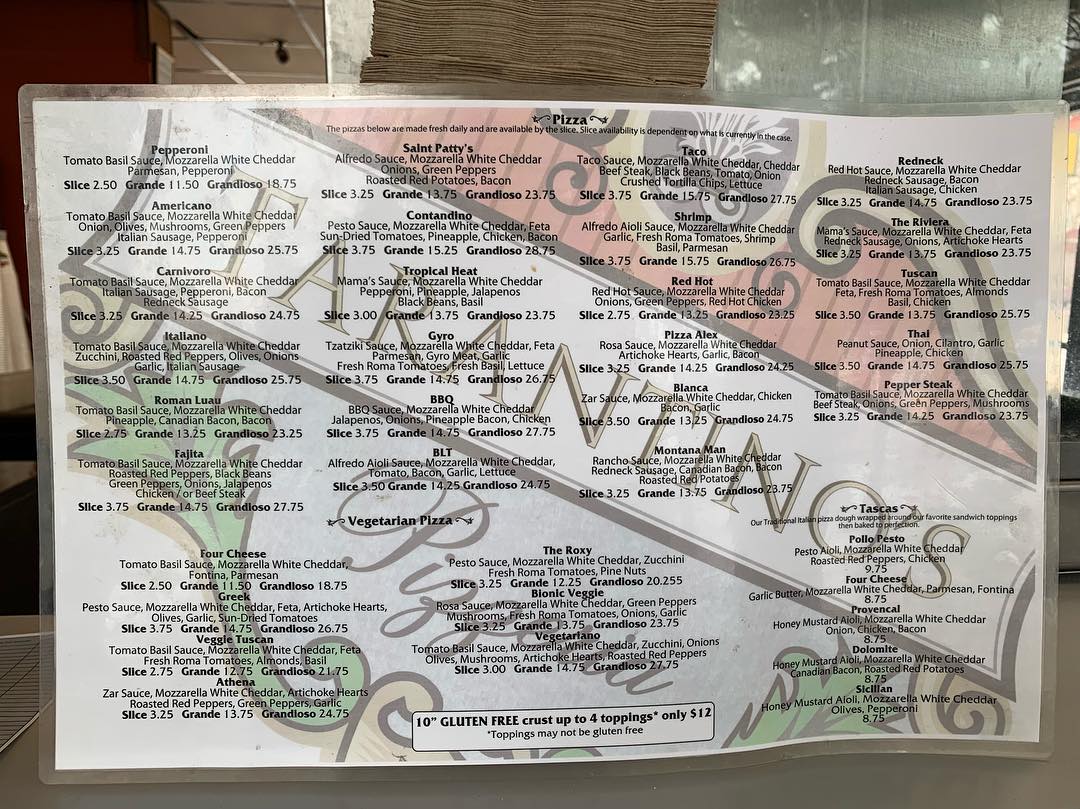 Pizza
The pizzas below are made fresh daily and are available by the slice. Slice availability is dependent on what is currently in the case.
Pepperoni
Tomato Basil Sauce, Mozzarella White Cheddar
Parmesan, Pepperoni
Slice 2.50 Grande 11.50 Grandioso 18.75
Americano
Tomato Basil Sauce, Mozzarella White Cheddar
Onion, Olives, Mushrooms, Green Peppers
Italian Sausage, Pepperoni
Slice 3.25 Grande 14.75 Grandioso 25.75
Carnivoro
Tomato Basil Sauce, Mozzarella White Cheddar
Italian Sausage, Pepperoni, Bacon
Redneck Sausage
Slice 3.25 Grande 14.25 Grandioso 24.75
Italiano
Tomato Basil Sauce, Mozzarella White Cheddar
Zucchini, Roasted Red Peppers, Olives, Onions
Garlic, Italian Sausage
Slice 3.50 Grande 14.75 Grandioso 25.75
Roman Luau
Tomato Basil Sauce, Mozzarella White Cheddar
Pineapple, Canadian Bacon, Bacon
Slice 2.75 Grande 13.25 Grandioso 23.25
Fajita
Tomato Basil Sauce, Mozzarella White Cheddar
Roasted Red Peppers, Black Beans
Green Peppers, Onions, Jalapenos
Chicken / or Beef Steak
Slice 3.75 Grande 14.75 Grandioso 27.75
Saint Patty's
Alfredo Sauce, Mozzarella White Cheddar
Onions, Green Peppers
Roasted Red Potatoes, Bacon
Slice 3.25 Grande 13.75 Grandioso 23.75
Contandino
Pesto Sauce, Mozzarella White Cheddar, Feta
Sun-Dried Tomatoes, Pineapple, Chicken, Bacon
Slice 3.75 Grande 15.25 Grandioso 28.75
Tropical Heat
Mama's Sauce, Mozzarella White Cheddar
Pepperoni, Pineapple, Jalapenos
Black Beans, Basil
Slice 3.00 Grande 13.75 Grandioso 23.75
Gyro
Tzatziki Sauce, Mozzarella White Cheddar, Feta
Parmesan, Gyro Meat, Garlic
Fresh Roma Tomatoes, Fresh Basil, Lettuce
Slice 3.75 Grande 14.75 Grandioso 26.75
BBQ
BBQ Sauce, Mozzarella White Cheddar
Jalapenos, Onions, Pineapple Bacon, Chicken
Slice 3.75 Grande 14.75 Grandioso 27.75
BLT
Alfredo Aioli Sauce, Mozzarella White Cheddar,
Tomato, Bacon, Garlic, Lettuce
Slice 3.50 Grande 14.25 Grandioso 24.75
Taco
Taco Sauce, Mozzarella White Cheddar, Cheddar
Beef Steak, Black Beans, Tomato, Onion
Crushed Tortilla Chips, Lettuce
Slice 3.75 Grande 15.75 Grandioso 27.75
Shrimp
Alfredo Aioli Sauce, Mozzarella White Cheddar
Garlic, Fresh Roma Tomatoes, Shrimp
Basil, Parmesan
Slice 3.75 Grande 15.75 Grandioso 26.75
Red Hot
Red Hot Sauce, Mozzarella White Cheddar
Onions, Green Peppers, Red Hot Chicken
Slice 2.75 Grande 13.25 Grandioso 23.25
Pizza Alex
Rosa Sauce, Mozzarella White Cheddar
Artichoke Hearts, Garlic, Bacon
Slice 3.25 Grande 14.25 Grandioso 24.25
Blanca
Zar Sauce, Mozzarella White Cheddar, Chicken
Bacon, Garlic
Slice 3.50 Grande 13.25 Grandioso 24.75
Montana Man
Rancho Sauce, Mozzarella White Cheddar
Redneck Sausage, Canadian Bacon, Bacon
Roasted Red Potatoes
Slice 3.25 Grande 13.75 Grandioso 23.75
Redneck
Red Hot Sauce, Mozzarella White Cheddar
Redneck Sausage, Bacon
Italian Sausage, Chicken
Slice 3.25 Grande 14.75 Grandioso 23.75
The Riviera
Mama's Sauce, Mozzarella White Cheddar, Feta
Redneck Sausage, Onions, Artichoke Hearts
Slice 3.25 Grande 13.75 Grandioso 23.75
Tuscan
Tomato Basil Sauce, Mozzarella White Cheddar
Feta, Fresh Roma Tomatoes, Almonds
Basil, Chicken
Slice 3.50 Grande 13.75 Grandioso 25.75
Thai
Peanut Sauce, Onion, Cilantro, Garlic
Pineapple, Chicken
Slice 3.50 Grande 14.75 Grandioso 25.75
Pepper Steak
Tomato Basil Sauce, Mozzarella White Cheddar
Beef Steak, Onions, Green Peppers, Mushrooms
Slice 3.25 Grande 14.25 Grandioso 23.75
TARANTINO'S
Pizzeria
Vegetarian Pizza
Four Cheese
Tomato Basil Sauce, Mozzarella White Cheddar,
Fontina, Parmesan
Slice 2.50 Grande 11.50 Grandioso 18.75
Greek
Pesto Sauce, Mozzarella White Cheddar, Feta, Artichoke Hearts,
Olives, Garlic, Sun-Dried Tomatoes
Slice 3.75 Grande 14.75 Grandioso 26.75
Veggie Tuscan
Tomato Basil Sauce, Mozzarella White Cheddar, Feta
Fresh Roma Tomatoes, Almonds, Basil
Slice 2.75 Grande 12.75 Grandioso 21.75
Athena
Zar Sauce, Mozzarella White Cheddar, Artichoke Hearts
Roasted Red Peppers, Green Peppers, Garlic
Slice 3.25 Grande 13.75 Grandioso 24.75
The Roxy
Pesto Sauce, Mozzarella White Cheddar, Zucchini
Fresh Roma Tomatoes, Pine Nuts
Slice 3.25 Grande 12.25 Grandioso 20.255
Bionic Veggie
Rosa Sauce, Mozzarella White Cheddar, Green Peppers
Mushrooms, Fresh Roma Tomatoes, Onions, Garlic
Slice 3.25 Grande 13.75 Grandioso 23.75
Vegetariano
Tomato Basil Sauce, Mozzarella White Cheddar, Zucchini, Onions
Olives, Mushrooms, Artichoke Hearts, Roasted Red Peppers
Slice 3.00 Grande 14.75 Grandioso 27.75
Tascas
Our Traditional Italian pizza dough wrapped around our favorite sandwich toppings
then baked to perfection.
Pollo Pesto
Pesto Aioli, Mozzarella White Cheddar
Roasted Red Peppers, Chicken
9.75
Four Cheese
Garlic Butter, Mozzarella White Cheddar, Parmesan, Fontina
8.75
Provencal
Honey Mustard Aioli, Mozzarella White Cheddar
Onion, Chicken, Bacon
8.75
Dolomite
Honey Mustard Aioli, Mozzarella White Cheddar
Canadian Bacon, Roasted Red Potatoes
8.75
Sicilian
Honey Mustard Aioli, Mozzarella White Cheddar
Olives, Pepperoni
8.75
10" GLUTEN FREE crust up to 4 toppings* only $12
*Toppings may not be gluten free